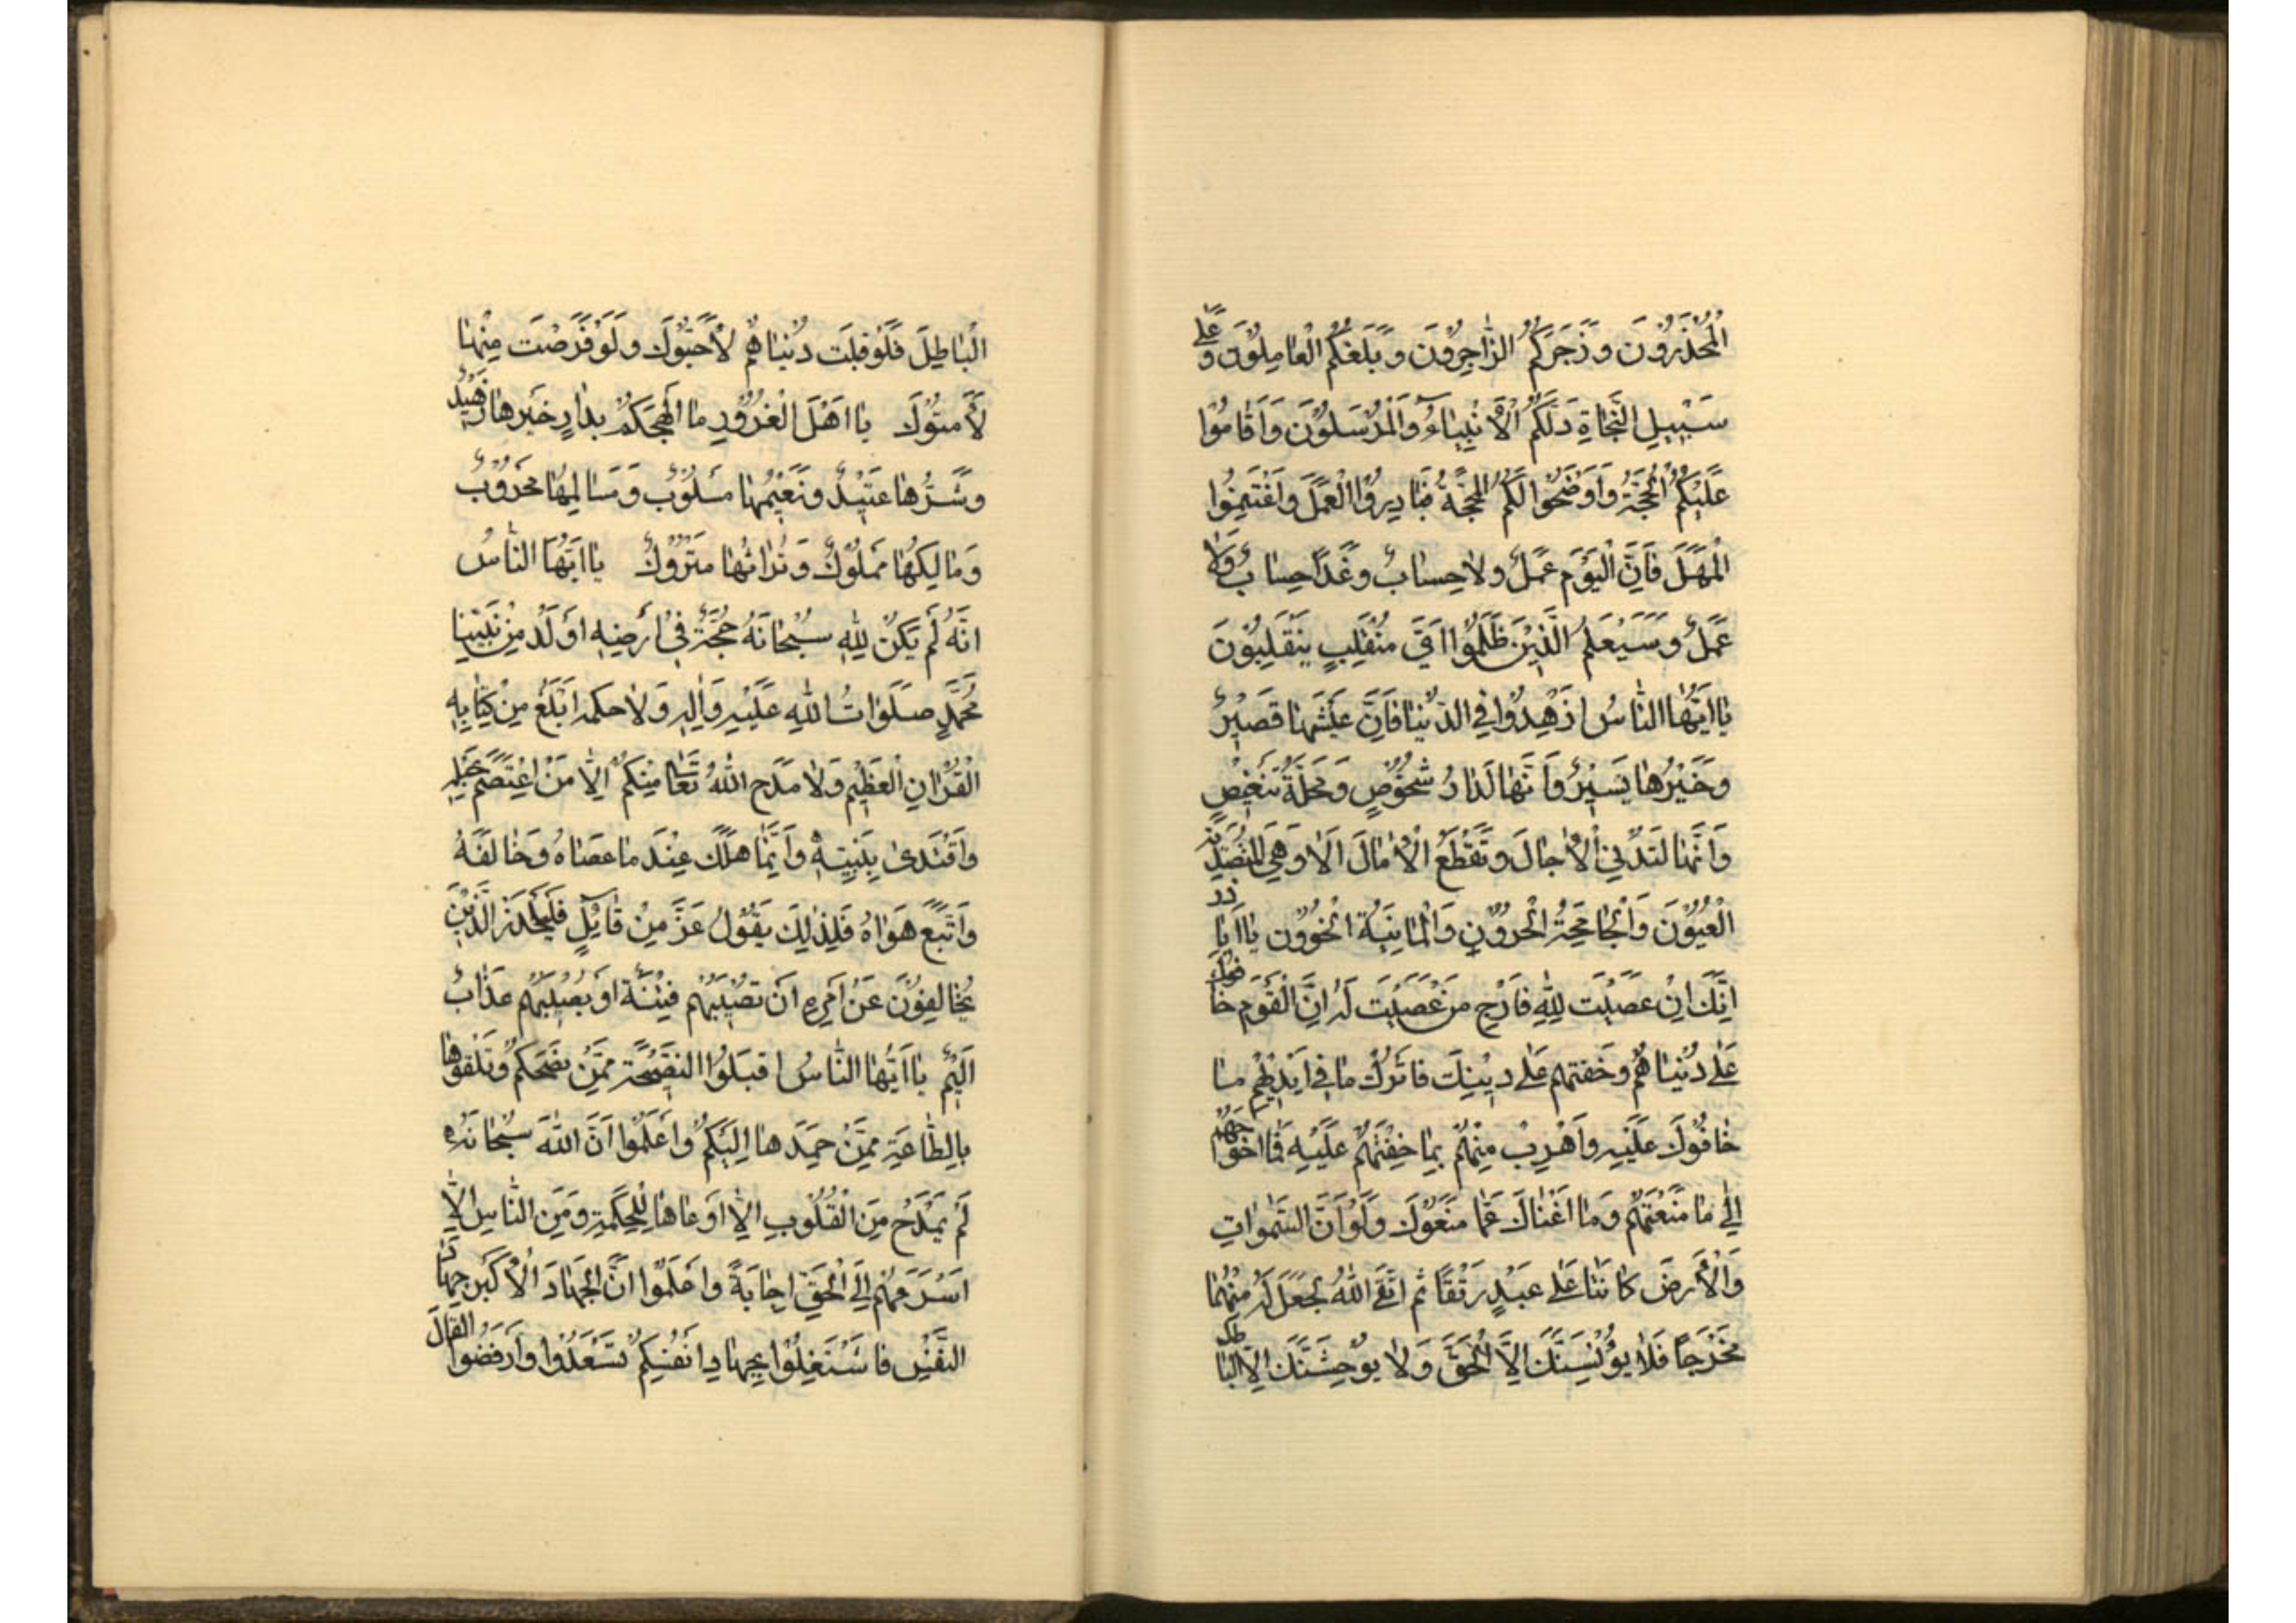 الْمُحَذِّرُونَ وَزَجَرَكُمُ الزَّاجِرُونَ وَبَلَّغَكُمُ الْعَامِلُونَ وَعَلَى
سَبِيلِ النَّجَاةِ دَلَّكُمُ الْأَنْبِيَاءُ وَالْمُرْسَلُونَ وَأَقَامُوا
عَلَيْكُمُ الْحُجَّةَ وَأَوْضَحُوا لَكُمُ الْمَحَجَّةَ فَبَادِرُوا الْعَمَلَ وَاغْتَنِمُوا
الْمَهَلَ فَاِنَّ الْيَوْمَ عَمَلٌ وَلَا حِسَابٌ وَغَدًا حِسَابٌ وَلَا
عَمَلٌ وَسَيَعْلَمُ الَّذِينَ ظَلَمُوا اَيَّ مُنْقَلَبٍ يَنْقَلِبُونَ
يَا اَيُّهَا النَّاسُ ازْهَدُوا فِي الدُّنْيَا فَاِنَّ عَيْشَهَا قَصِيرٌ
وَخَيْرُهَا يَسِيرٌ وَاَنَّهَا لَدَارُ شُخُوصٍ وَمَحَلَّةُ تَنْغِيصٍ
وَاَنَّهَا لَتُدْنِي الْآجَالَ وَتَقْطَعُ الْآمَالَ اَلَا وَهِيَ الْمُتَصَدِّيَةُ
الْعَيُونَ وَالْجَامِحَةُ الْحَرُونِ وَالْمَانِيَةُ الْخَوُونِ يَا اَبَا ذر
اِنَّكَ اِنْ غَضِبْتَ لِلَّهِ فَارْجُ مَنْ غَضِبْتَ لَهُ اِنَّ الْقَوْمَ خَافُوكَ
عَلَى دُنْيَاهُمْ وَخِفْتَهُمْ عَلَى دِينِكَ فَاتْرُكْ مَا فِي اَيْدِيهِمْ مَا
خَافُوكَ عَلَيْهِ وَاهْرُبْ مِنْهُمْ بِمَا خِفْتَهُمْ عَلَيْهِ فَمَا اَحْوَجَهُمْ
اِلَى مَا مَنَعْتَهُمْ وَمَا اَغْنَاكَ عَمَّا مَنَعُوكَ وَلَوْ اَنَّ السَّمَوَاتِ
وَالْأَرْضَ كَانَتَا عَلَى عَبْدٍ رَتْقًا ثُمَّ اتَّقَى اللَّهَ لَجَعَلَ لَهُ مِنْهُمَا
مَخْرَجًا فَلَا يُؤْنِسَنَّكَ اِلَّا الْحَقُّ وَلَا يُوحِشَنَّكَ اِلَّا الْبَاطِلُ
الْبَاطِلَ فَلَوْ قَبِلْتَ دُنْيَاهُمْ لَأَحَبُّوكَ وَلَوْ قَرَضْتَ مِنْهَا
لَأَمِنُوكَ يَا اَهْلَ الْغُرُورِ مَا اَلْهَجَكُمْ بِدَارٍ خَيْرُهَا زَهِيدٌ
وَشَرُّهَا عَتِيدٌ وَنَعِيمُهَا مَسْلُوبٌ وَمُسَالِمُهَا مَحْرُوبٌ
وَمَالِكُهَا مَمْلُوكٌ وَتُرَاثُهَا مَتْرُوكٌ يَا اَيُّهَا النَّاسُ
اِنَّهُ لَمْ يَكُنْ لِلَّهِ سُبْحَانَهُ حُجَّةٌ فِي اَرْضِهِ اَوْكَدُ مِنْ نَبِيِّنَا
مُحَمَّدٍ صَلَوَاتُ اللَّهِ عَلَيْهِ وَآلِهِ وَلَا حِكْمَةٌ اَبْلَغُ مِنْ كِتَابِهِ
الْقُرْآنِ الْعَظِيمِ وَلَا مَدَحَ اللَّهُ تَعَالَى مِنْكُمْ اِلَّا مَنِ اعْتَصَمَ بِحَبْلِهِ
وَاقْتَدَى بِنَبِيِّهِ وَاِنَّمَا هَلَكَ عِنْدَ مَا عَصَاهُ وَخَالَفَهُ
وَاتَّبَعَ هَوَاهُ فَلِذَلِكَ يَقُولُ عَزَّ مِنْ قَائِلٍ فَلْيَحْذَرِ الَّذِينَ
يُخَالِفُونَ عَنْ اَمْرِهِ اَنْ تُصِيبَهُمْ فِتْنَةٌ اَوْ يُصِيبَهُمْ عَذَابٌ
اَلِيمٌ يَا اَيُّهَا النَّاسُ اقْبَلُوا النَّصِيحَةَ مِمَّنْ نَصَحَكُمْ وَتَلَقَّوْهَا
بِالطَّاعَةِ مِمَّنْ حَمَلَهَا اِلَيْكُمْ وَاعْلَمُوا اَنَّ اللَّهَ سُبْحَانَهُ
لَمْ يَمْدَحْ مِنَ الْقُلُوبِ اِلَّا اَوْعَاهَا لِلْحِكْمَةِ وَمِنَ النَّاسِ اِلَّا
اَسْرَعَهُمْ اِلَى الْحَقِّ اِجَابَةً وَاعْلَمُوا اَنَّ الْجِهَادَ الْأَكْبَرَ جِهَادُ
النَّفْسِ فَاشْتَغِلُوا بِجِهَادِ اَنْفُسِكُمْ تَسْعَدُوا وَارْفُضُوا الْقَالَ